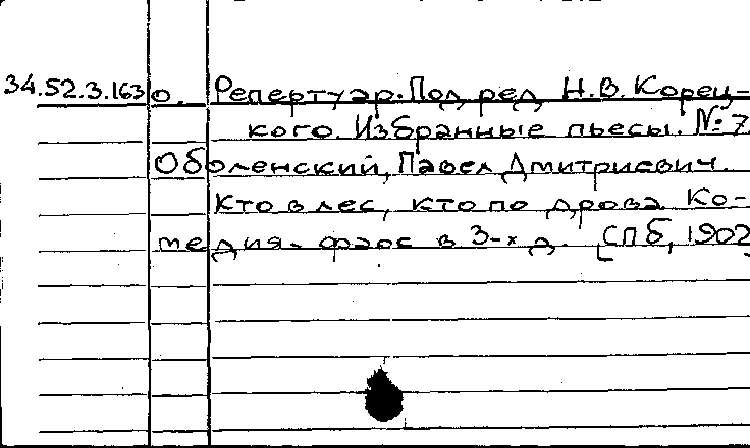 34.52.3.163 о. Репертуар. Под ред Н.В. Корец-
кого. Избранные пьесы. № 7
Оболенский, Павел Дмитриевич.
Кто в лес, кто по дрова Ко-
медия-фарс в 3-х д. [СПб, 1902